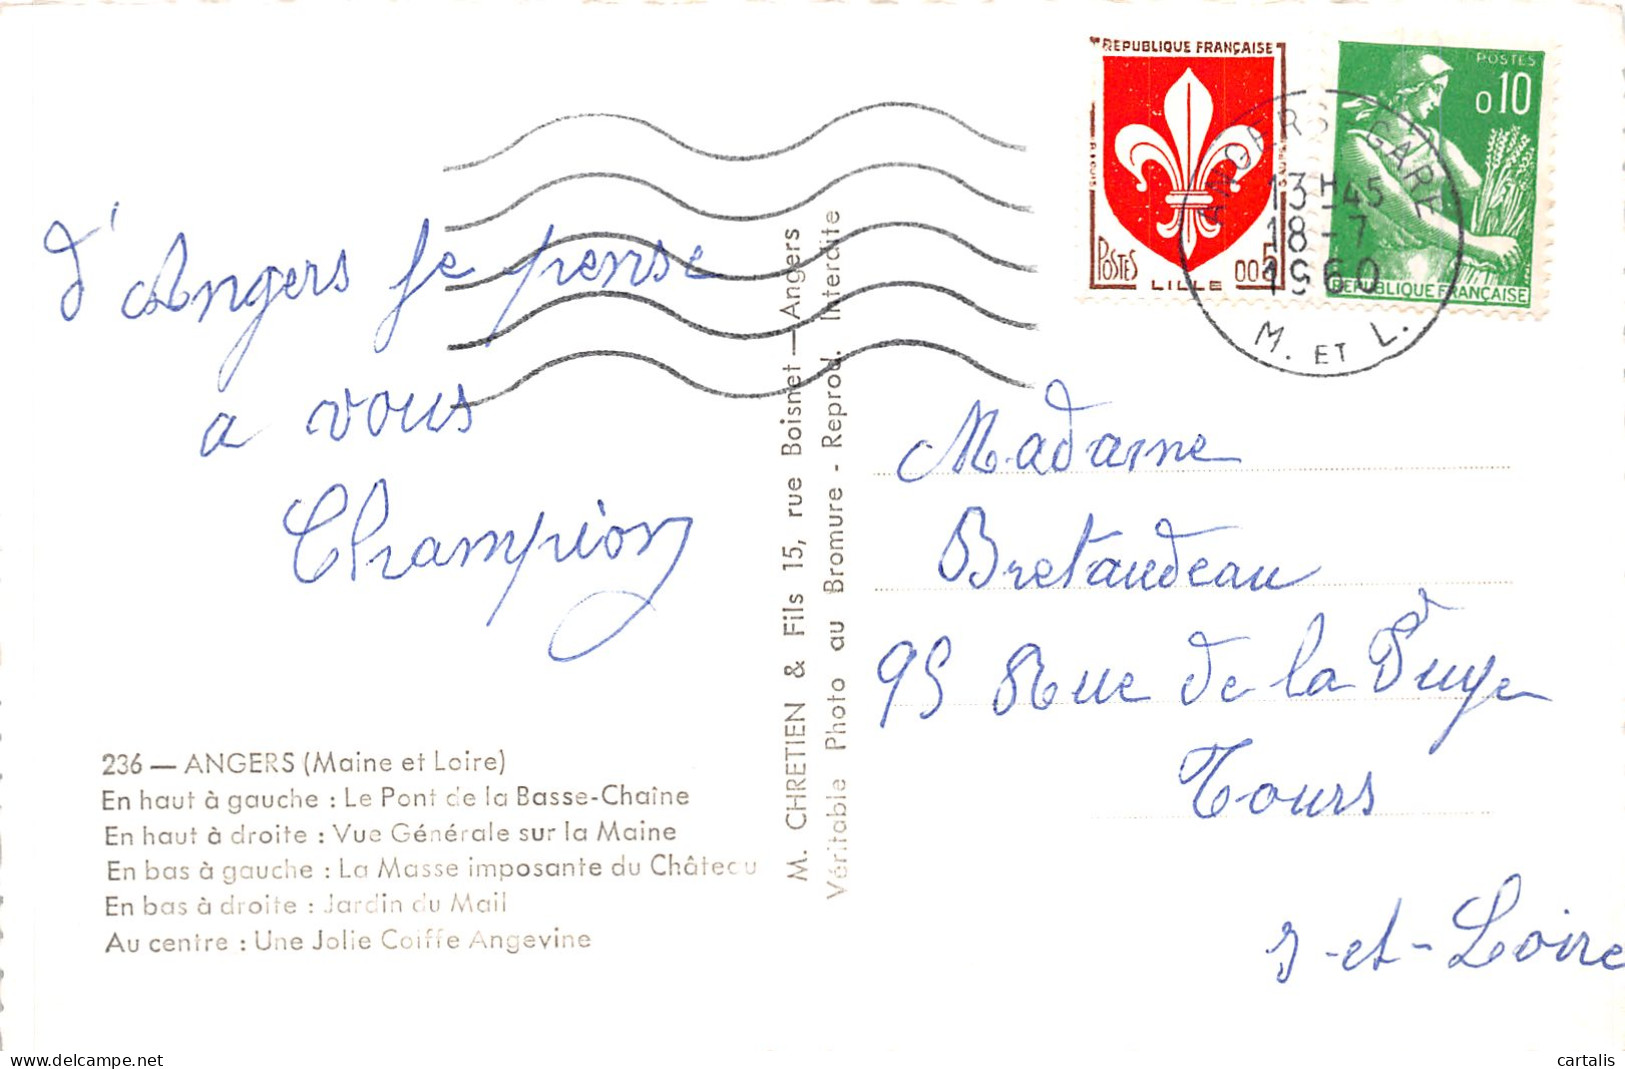 d'Angers je pense
a vous
Champion
236 — ANGERS (Maine et Loire)
En haut à gauche : Le Pont de la Basse-Chaîne
En haut à droite : Vue Générale sur la Maine
En bas à gauche : La Masse imposante du Château
En bas à droite : Jardin du Mail
Au centre : Une Jolie Coiffe Angevine
M. CHRETIEN & Fils 15, rue Boisnet — Angers
Véritable Photo au Bromure - Reprod. Interdite
REPUBLIQUE FRANÇAISE
POSTES
LILLE
005
POSTES
0,10
REPUBLIQUE FRANÇAISE
ANGERS-GARE
13H45
18-7
1960
M. ET L.
Madame
Bretaudeau
95 Rue de la
Tours
I-et-Loire
cartalis
www.delcampe.net